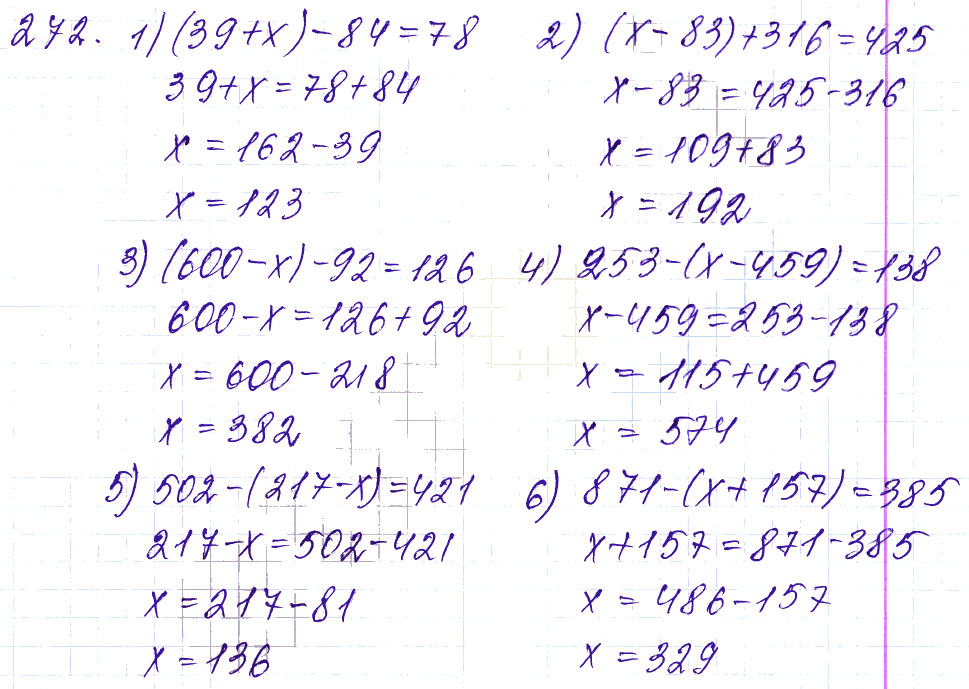 272. 1) (39+x)-84=78
39+x=78+84
x=162-39
x=123
2) (x-83)+316=425
x-83=425-316
x=109+83
x=192
3) (600-x)-92=126
600-x=126+92
x=600-218
x=382
4) 253-(x-459)=138
x-459=253-138
x=115+459
x=574
5) 502-(217-x)=421
217-x=502-421
x=217-81
x=136
6) 871-(x+157)=385
x+157=871-385
x=486-157
x=329